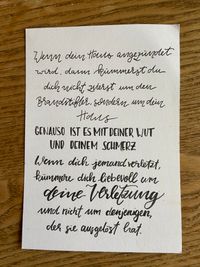 Wenn dein Haus angezündet
wird, dann kümmerst du
dich nicht zuerst um den
Brandstifter, sondern um dein
Haus
GENAUSO IST ES MIT DEINER WUT
UND DEINEM SCHMERZ
Wenn dich jemand verletzt,
kümmere dich liebevoll um
deine Verletzung
und nicht um denjenigen,
der sie ausgelöst hat.